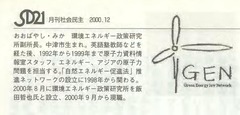 SD21 月刊社会民主 2000.12
おおばやし・みか 環境エネルギー政策研究
所副所長。中津市生まれ。英語塾教師などを
経た後、1992から1999年まで原子力資料情
報室スタッフ。エネルギー、アジアの原子力
問題を担当する。「自然エネルギー促進法」推
進ネットワークの設立に1998年から関わる。
2000年8月に環境エネルギー政策研究所を飯
田哲也氏と設立、2000年9月から現職。
GEN
Green Energy law Network